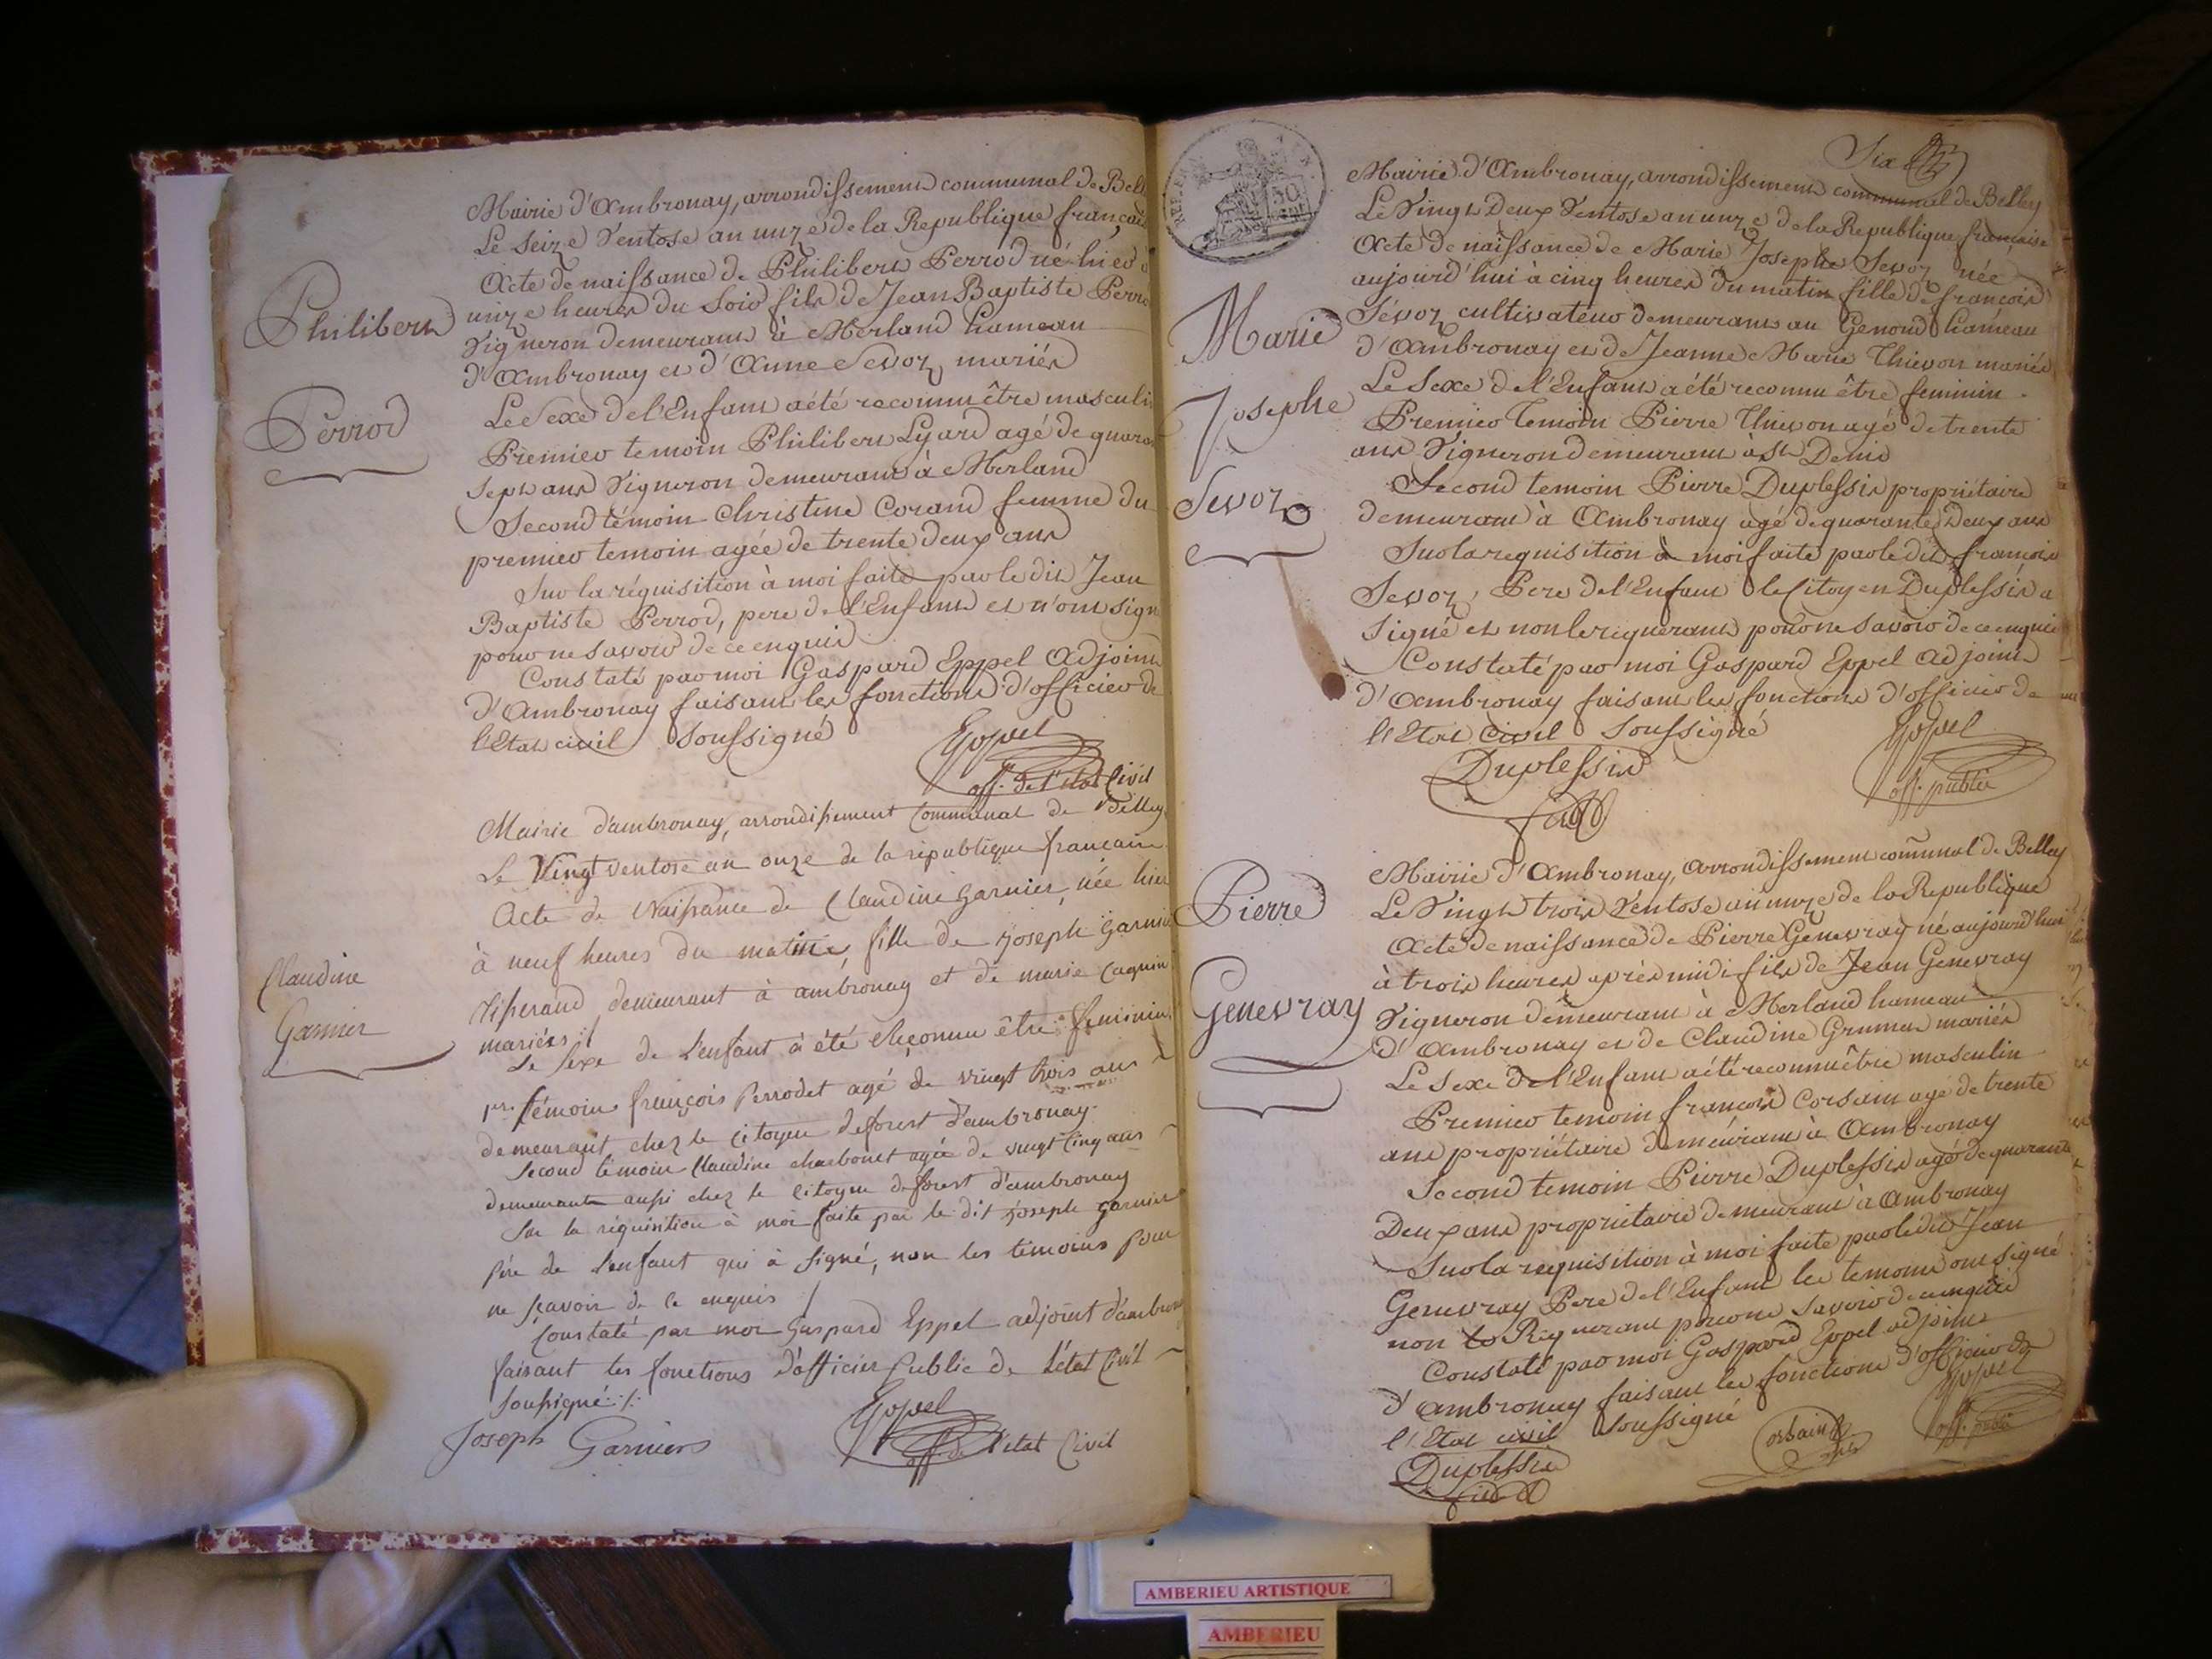 Mairie d'Ambronay, arrondissement communal de Bell
Le Seize Ventose an unze de la Republique françai
Acte de naissance de Philibert Perrod né hier à
unze heures du Soir fils de Jean Baptiste Perro
Vigneron demeurant à Merland hameau
d'Ambronay et d'Anne Sevoz mariés
Philibert
Perrod
Le Sexe de l'Enfant a été reconnu être masculin
Premier temoin Philibert Lyard agé de quaran
Sept ans Vigneron demeurant à Merland
Second témoin Christine Corand femme du
premier temoin agée de trente deux ans
Sur la réquisition à moi faite par le dit Jean
Baptiste Perrod, pere de l'Enfant et n'ont signé
pour ne savoir de ce enquis
Constaté par moi Gaspard Eppel Adjoint
d'Ambronay faisant les fonctions d'officier de
l'Etat civil Soussigné
Eppel
off. de l'état Civil
Mairie d'ambronay, arrondissement Communal de Belley
Le Vingt ventose an onze de la république francaise
Acte de Naissance de Claudine Garnier, née hier
à neuf heures du matin, fille de Joseph Garnier
Tisserand demeurant à ambronay et de marie Cagnin
mariés ./.
Claudine
Garnier
Le sexe de l'enfant à été Reconnu être feminin
pr. témoin françois Perrodet agé de vingt trois ans
demeurant chez le citoyen deforest d'ambronay.
Second témoin Claudine charbonet agée de vingt Cinq ans
demeurante aussi chez le citoyen deforest d'ambronay
Sur la réquisition à moi faite par le dit Joseph garnier
père de l'enfant qui à signé, non les témoins pour
ne sçavoir de ce enquis /
Constaté par moi Gaspard Eppel adjoint d'ambron
faisant les fonctions d'officier public de l'état Civil
soussigné ./.
Joseph Garniers
Eppel
off de l'état Civil
Six
30
Mairie d'Ambronay, arrondissement communal de Belley
Le Vingt Deux Ventose an unze de la Republique française
Acte de naissance de Marie Josephe Sevoz née
aujourd'hui à cinq heures du matin fille de françois
Sévoz cultivateur demeurant au Genoud hameau
d'Ambronay et de Jeanne Marie Thievon mariés
Marie
Josephe
Sevoz
Le Sexe de l'Enfant a été reconnu être feminin.
Premier temoin Pierre Thievon agé de trente
ans Vigneron demeurant à St Denis
Second temoin Pierre Duplessis propriétaire
demeurant à Ambronay agé de quarante Deux ans
Sur la requisition à moi faite par le dit françois
Sevoz, Pere de l'Enfant le Citoyen Duplessis a
signé et non le requerant pour ne savoir de ce enquis
Constaté par moi Gaspard Eppel adjoint
d'Ambronay faisant les fonctions d'officier de
l'Etat Civil Soussigné
Duplessis
Eppel
off. public
Mairie d'Ambronay, Arrondissement comunal de Belley
Le Vingt trois Ventose an unze de la Republique
Acte de naissance de Pierre Genevray né aujourd'hui
à trois heures après midi fils de Jean Genevray
Vigneron demeurant à Merland hameau
d'Ambronay et de Claudine mariés
Pierre
Genevray
Le Sexe de l'Enfant a été reconnu être masculin
Premier temoin françois Corsain agé de trente
ans propriétaire demeurant à Ambronay
Second temoin Pierre Duplessis agé de quarante
Deux ans propriétaire demeurant à Ambronay
Sur la requisition à moi faite par le dit Jean
Genevray Pere de l'Enfant les temoins ont signé
non le Requerant pour ne savoir de ce enquis
Constaté par moi Gaspard Eppel adjoint
d'Ambronay faisant les fonctions d'officier de
l'Etat civil Soussigné
Duplessis
Corsain
Eppel
off. public
AMBERIEU ARTISTIQUE
AMBERIEU